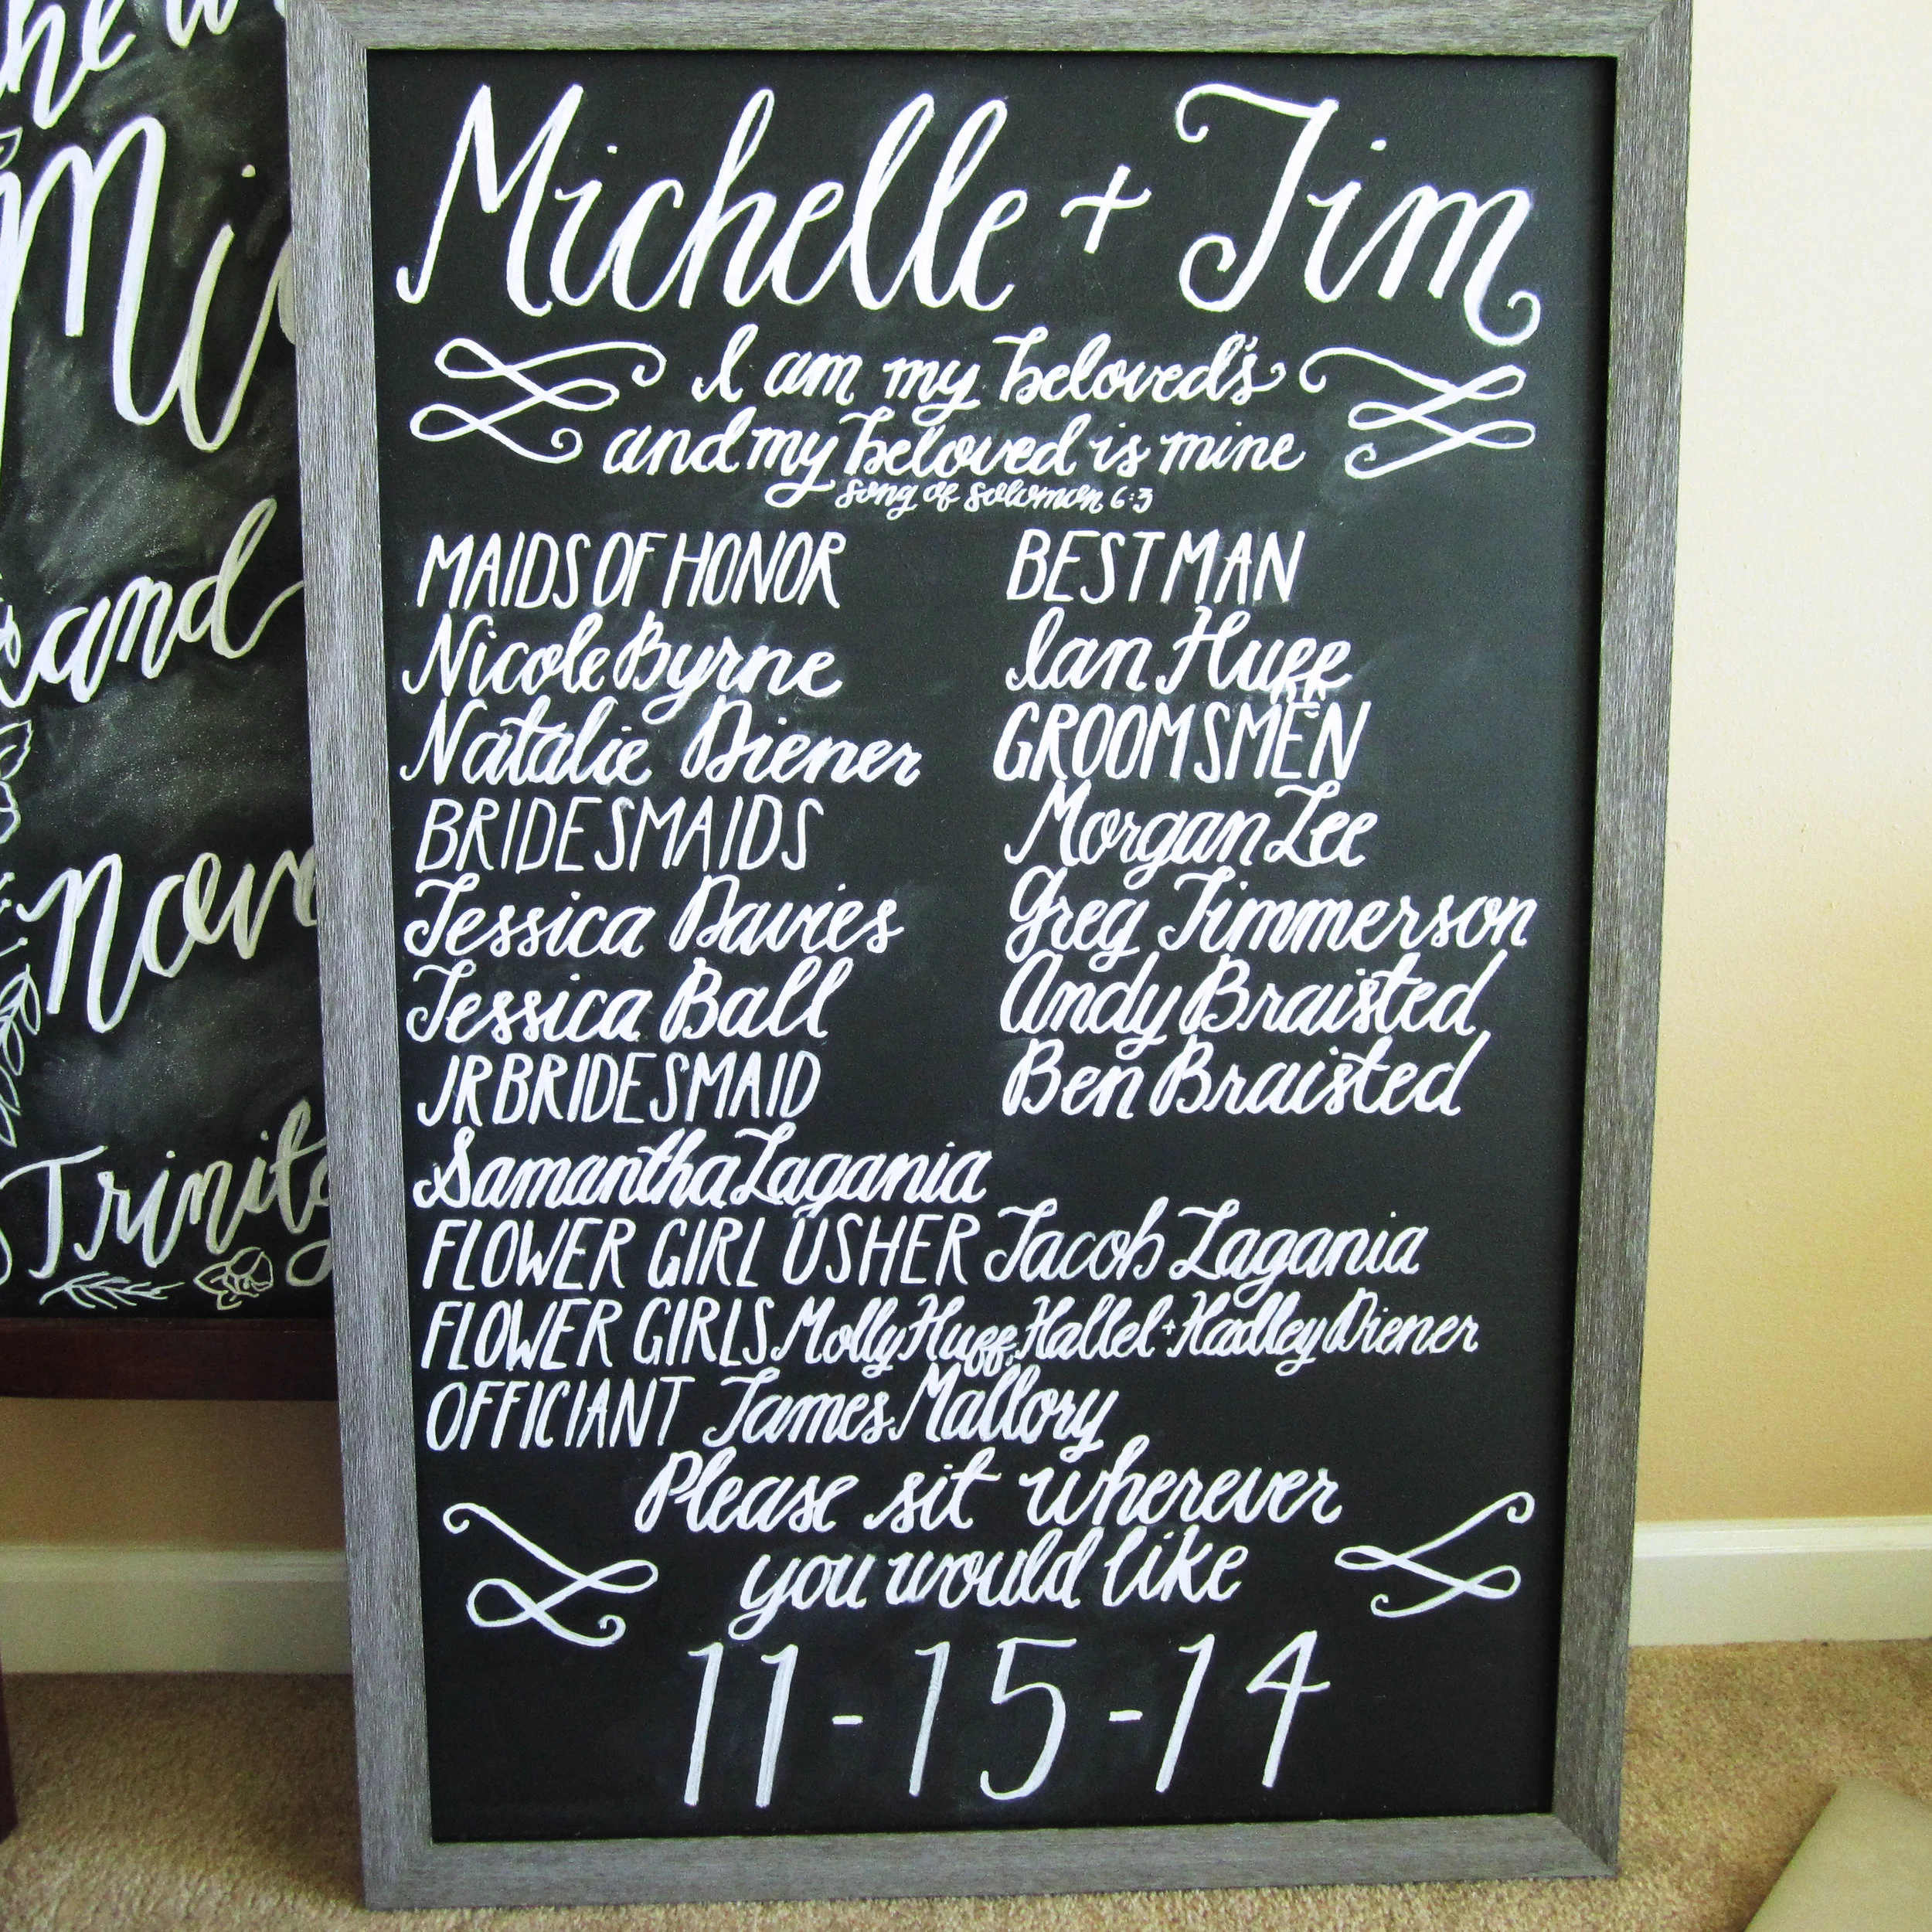 Michelle + Tim
I am my beloved's
and my beloved is mine
song of solomon 6:3
MAIDS OF HONOR
Nicole Byrne
Natalie Diener
BRIDESMAIDS
Jessica Davies
Jessica Ball
JR BRIDESMAID
Samantha Lagania
BEST MAN
Ian Huff
GROOMSMEN
Morgan Lee
Greg Timmerson
Andy Braisted
Ben Braisted
FLOWER GIRL USHER Jacob Lagania
FLOWER GIRLS Molly Huff, Hallel + Hadley Diener
OFFICIANT James Mallory
Please sit wherever
you would like
11-15-14
Mi
and
Nov
Trinity